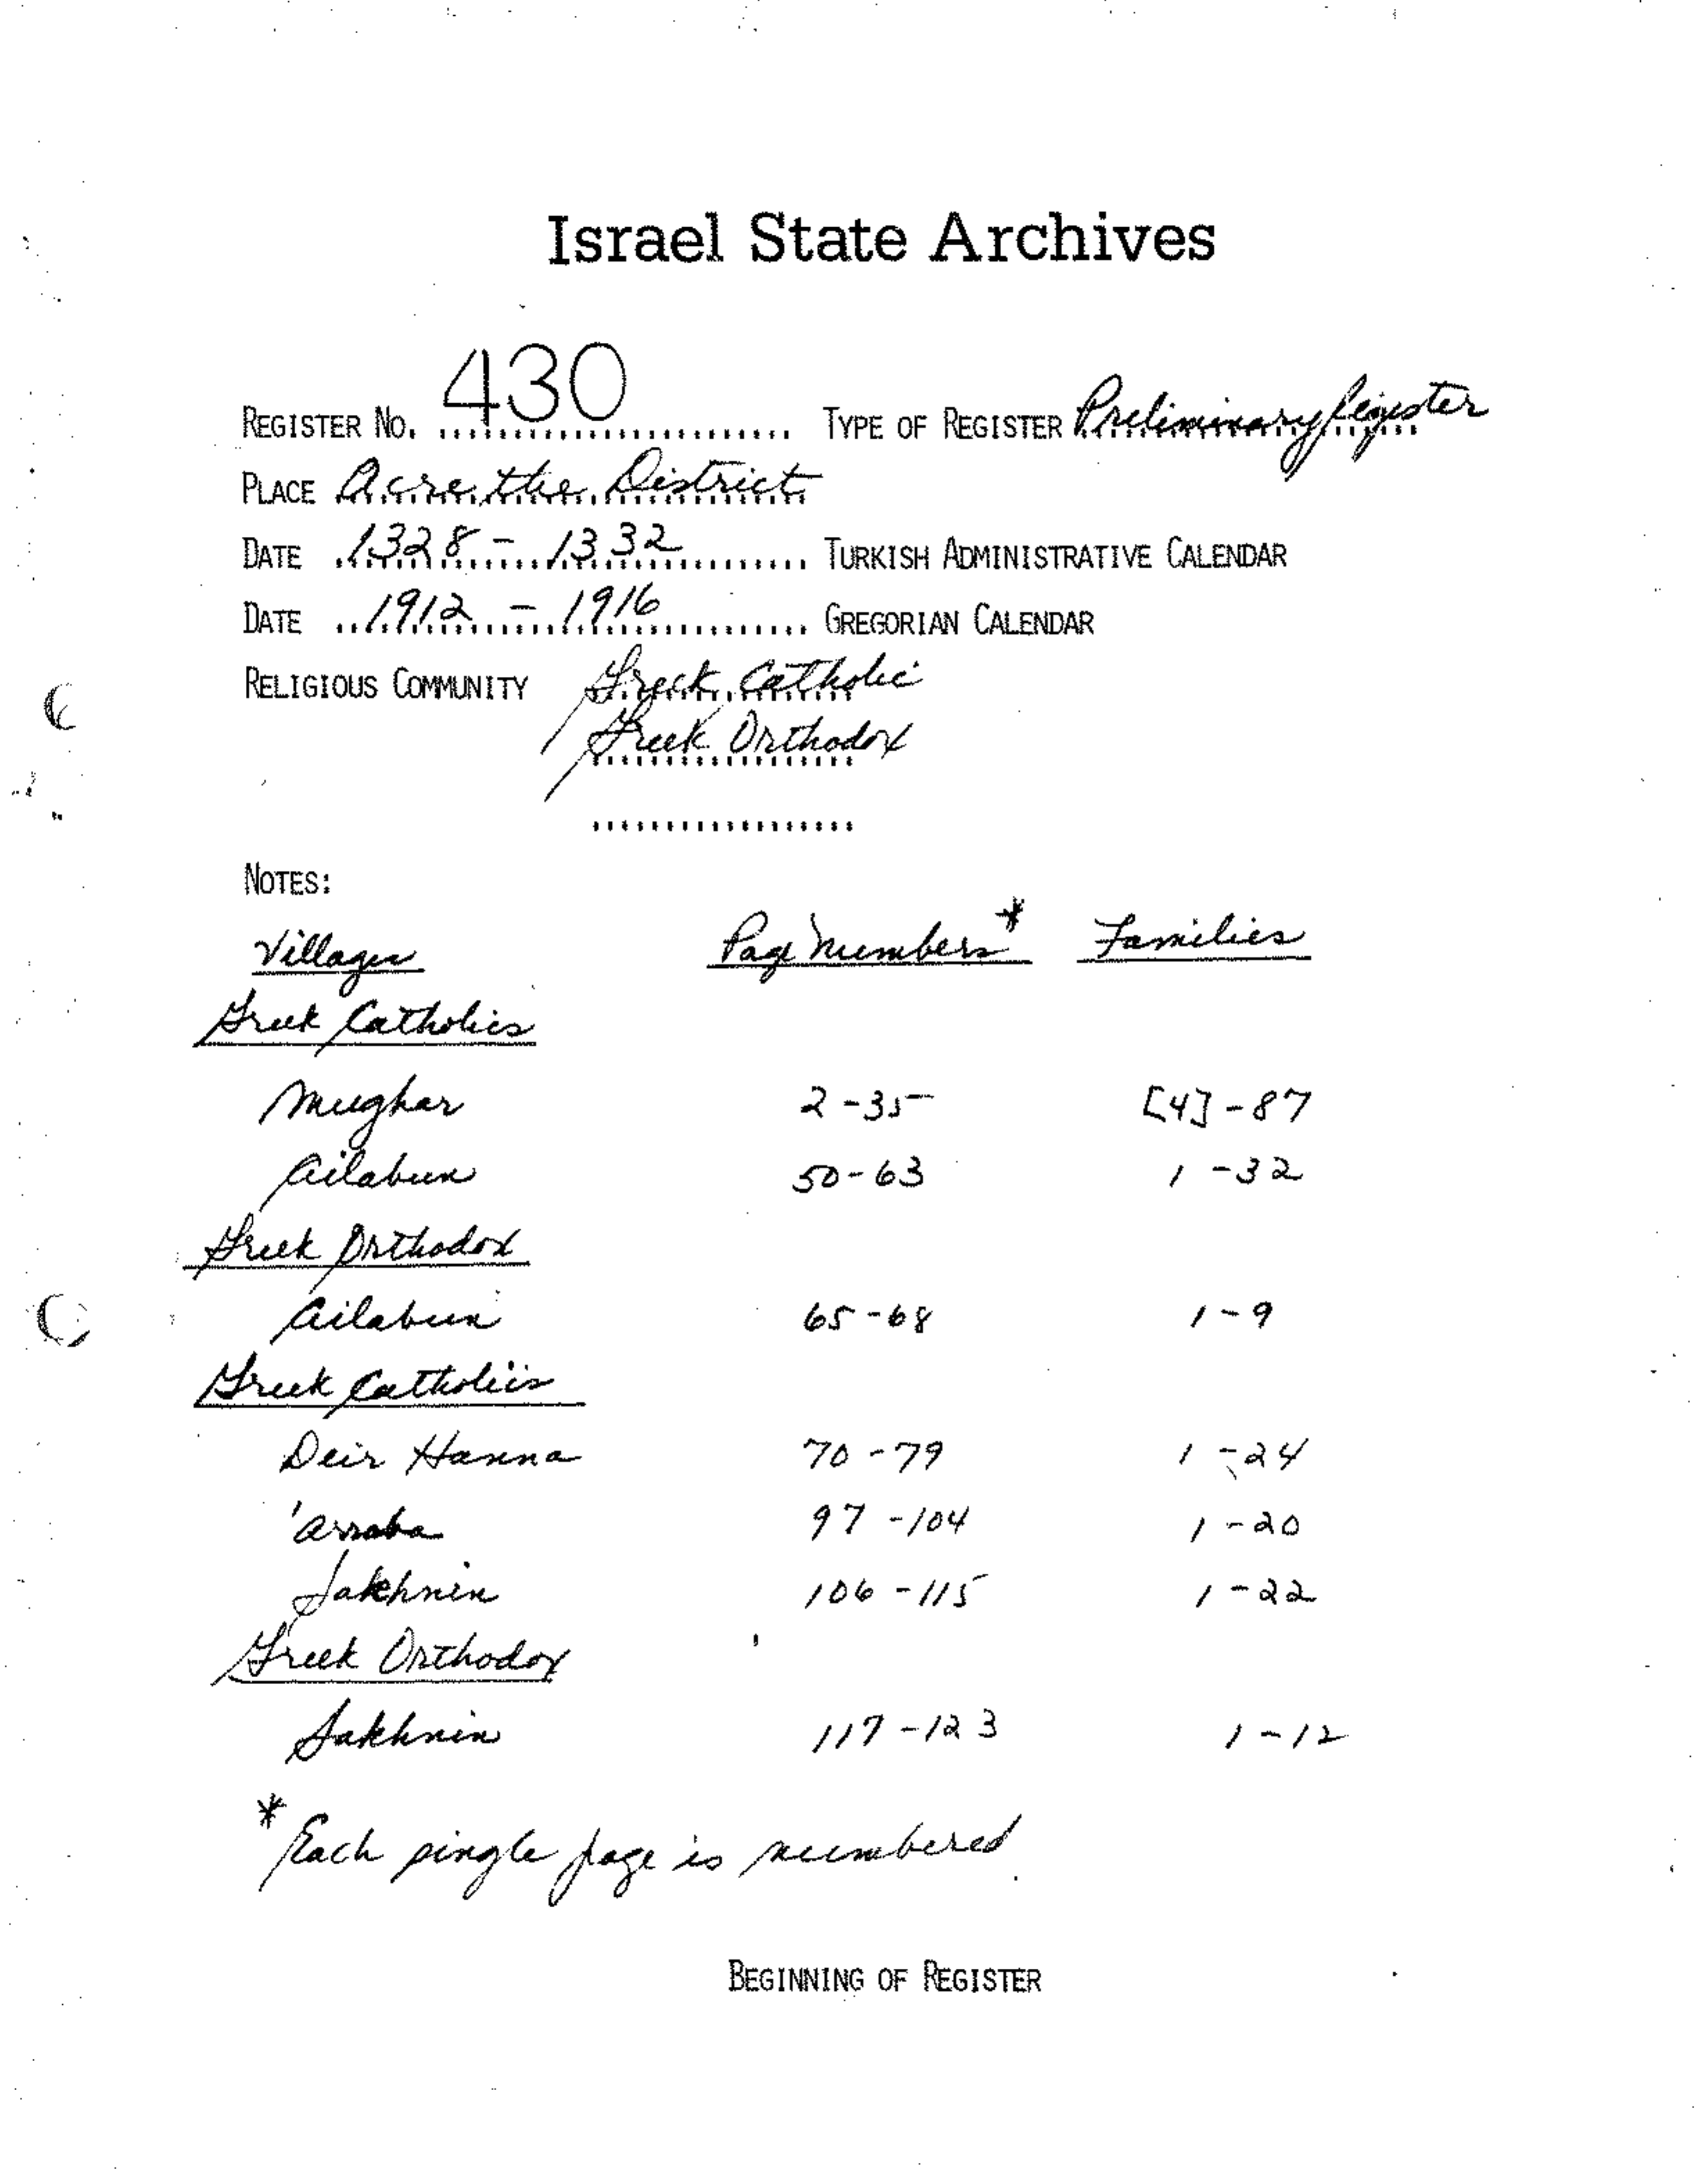 Israel State Archives
REGISTER NO. 430 TYPE OF REGISTER Preliminary Register
PLACE Acre, the District
DATE 1328 - 1332 TURKISH ADMINISTRATIVE CALENDAR
DATE 1912 - 1916 GREGORIAN CALENDAR
RELIGIOUS COMMUNITY Greek Catholic
Greek Orthodox
NOTES:
Villages Page Numbers* Families
Greek Catholics
Mughar 2-35 [4]-87
Ailabun 50-63 1-32
Greek Orthodox
Ailabun 65-68 1-9
Greek Catholics
Deir Hanna 70-79 1-24
'Arraba 97-104 1-20
Sakhnin 106-115 1-22
Greek Orthodox
Sakhnin 117-123 1-12
* Each single page is numbered.
BEGINNING OF REGISTER